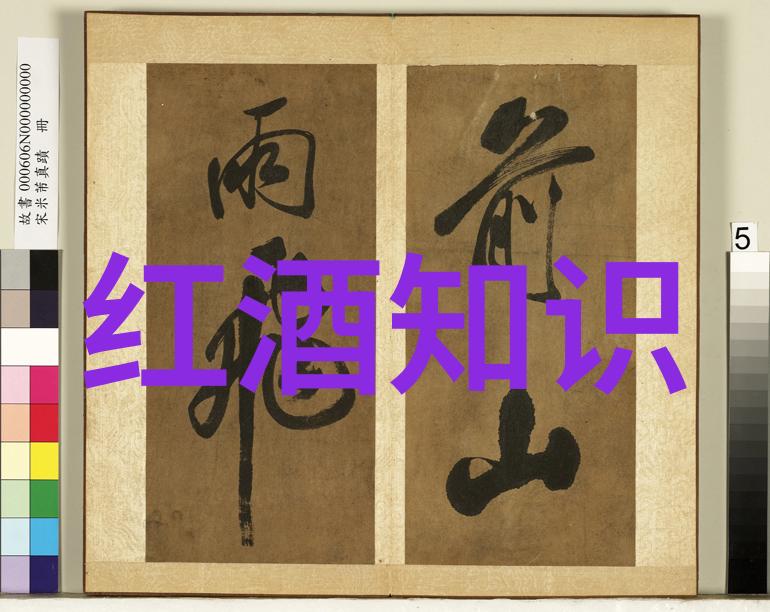 故書 000606N000000000
宋米芾真蹟 冊
前山
雨飛
红酒知识
5